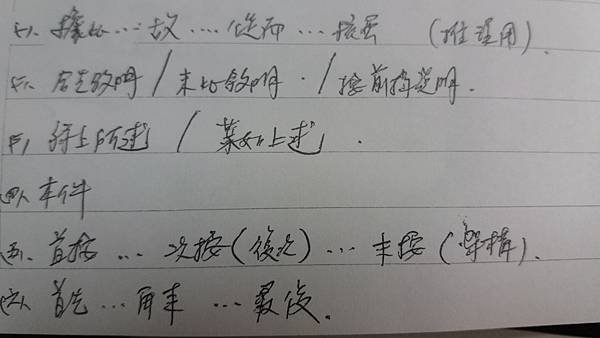 (一)、據此…故…從而…
(二)、合先敘明/末此敘明./按前揭說明.
(三)、綜上所述/業如上述.
(四)、本件
(五)、首按…次按(復次)…末按(架構).
(六)、首先…再來…最後.